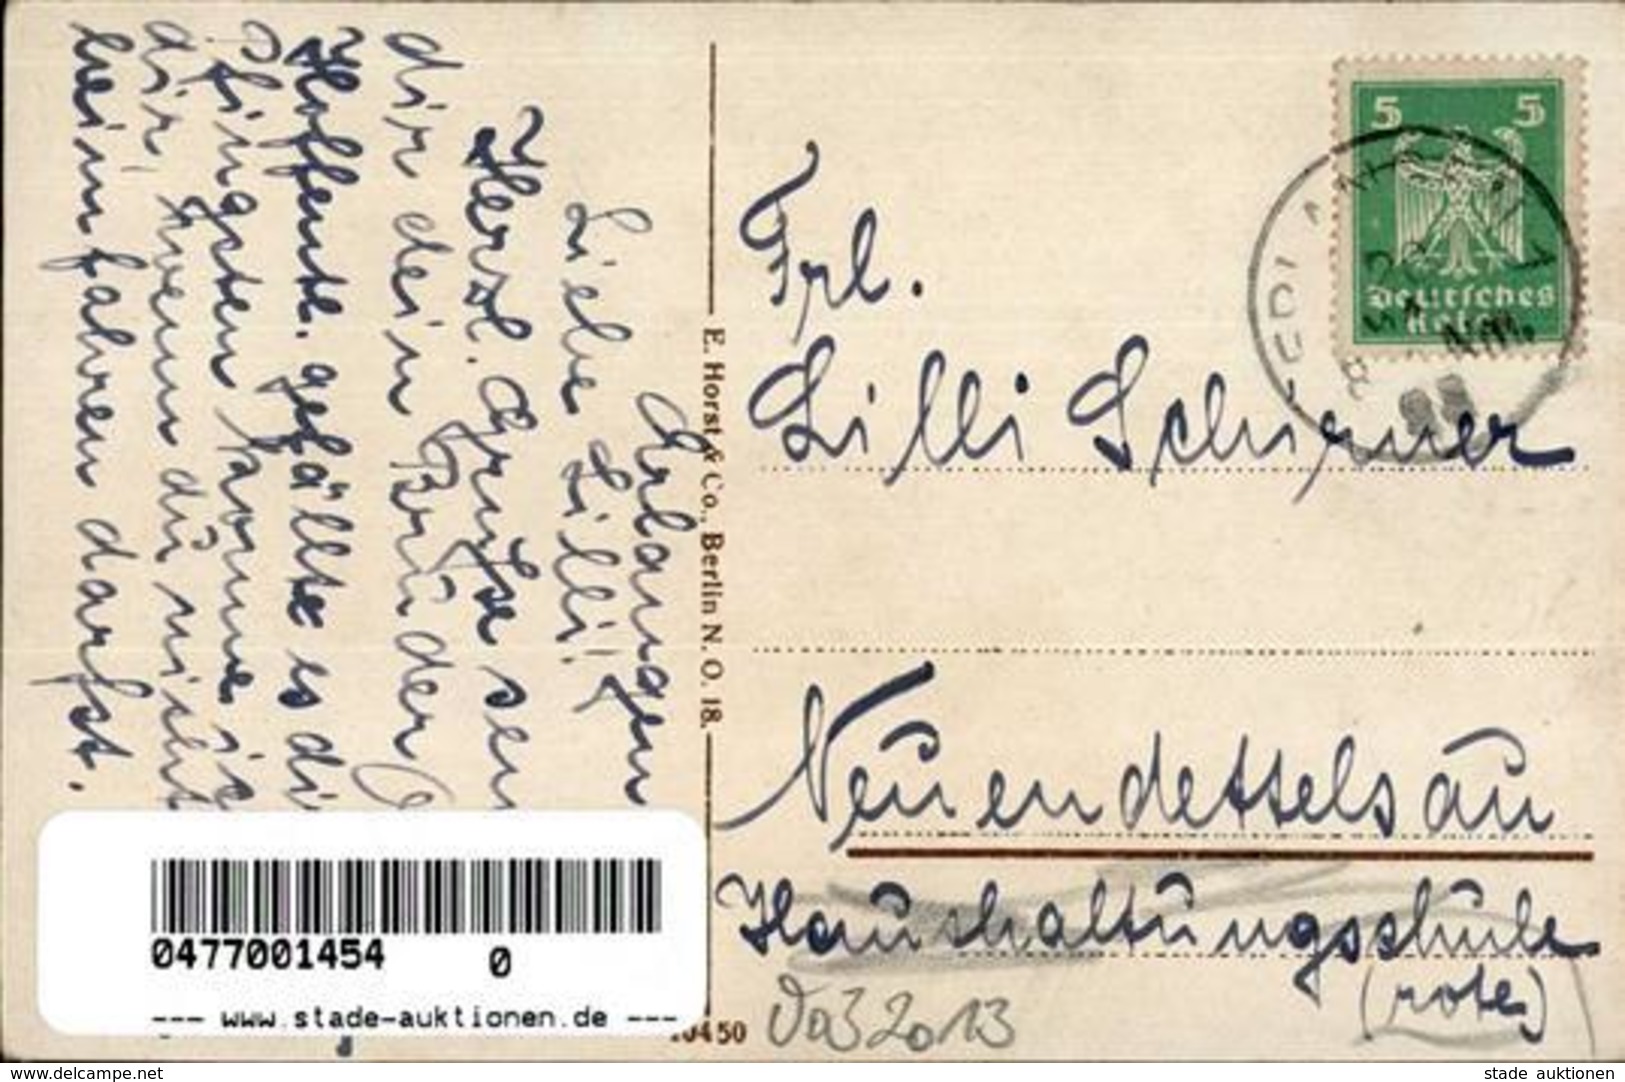 Erlangen
Liebe Lilli!
Herzl. Grüße sen
dir dein Bruder
Hoffentl. gefällts es di
Pfingsten komme ic
dir, wenn du nicht
heimfahren darfst.
E. Horst & Co., Berlin N. O. 18.
5 5
Deutsches
Reich
Frl.
Lilli Schirmer
Neuendettelsau
Haushaltungsschule
(rote)
Va32013
10450
0477001454 0
--- www.stade-auktionen.de ---
www.delcampe.net
stade auktionen